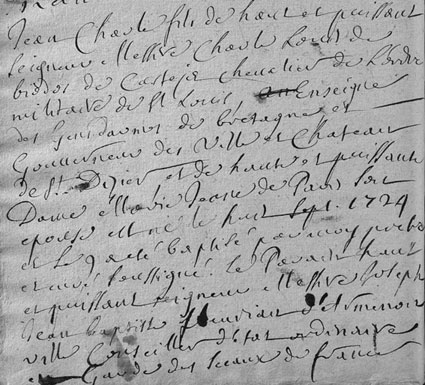 Jean Charle fils de haut et puissant
seigneur Messire Charle Louis de
biodos de Casteja chevalier de L'ordre
militaire de St Louis, Enseigne
des Gendarmes de bretagne et
Gouverneur des ville et Chateau
de St Dizier et de haute et puissante
Dame Marie de Paris son
epouse est né le huit Sept. 1724
et le 9 a eté baptisé par moy prêtre
et curé soussigné. le Parain haut
et puissant seigneur Messire Joseph
Jean baptiste fleuriau d'Armenon
ville Conseiller d'Etat ordinaire
Garde des Sceaux de france